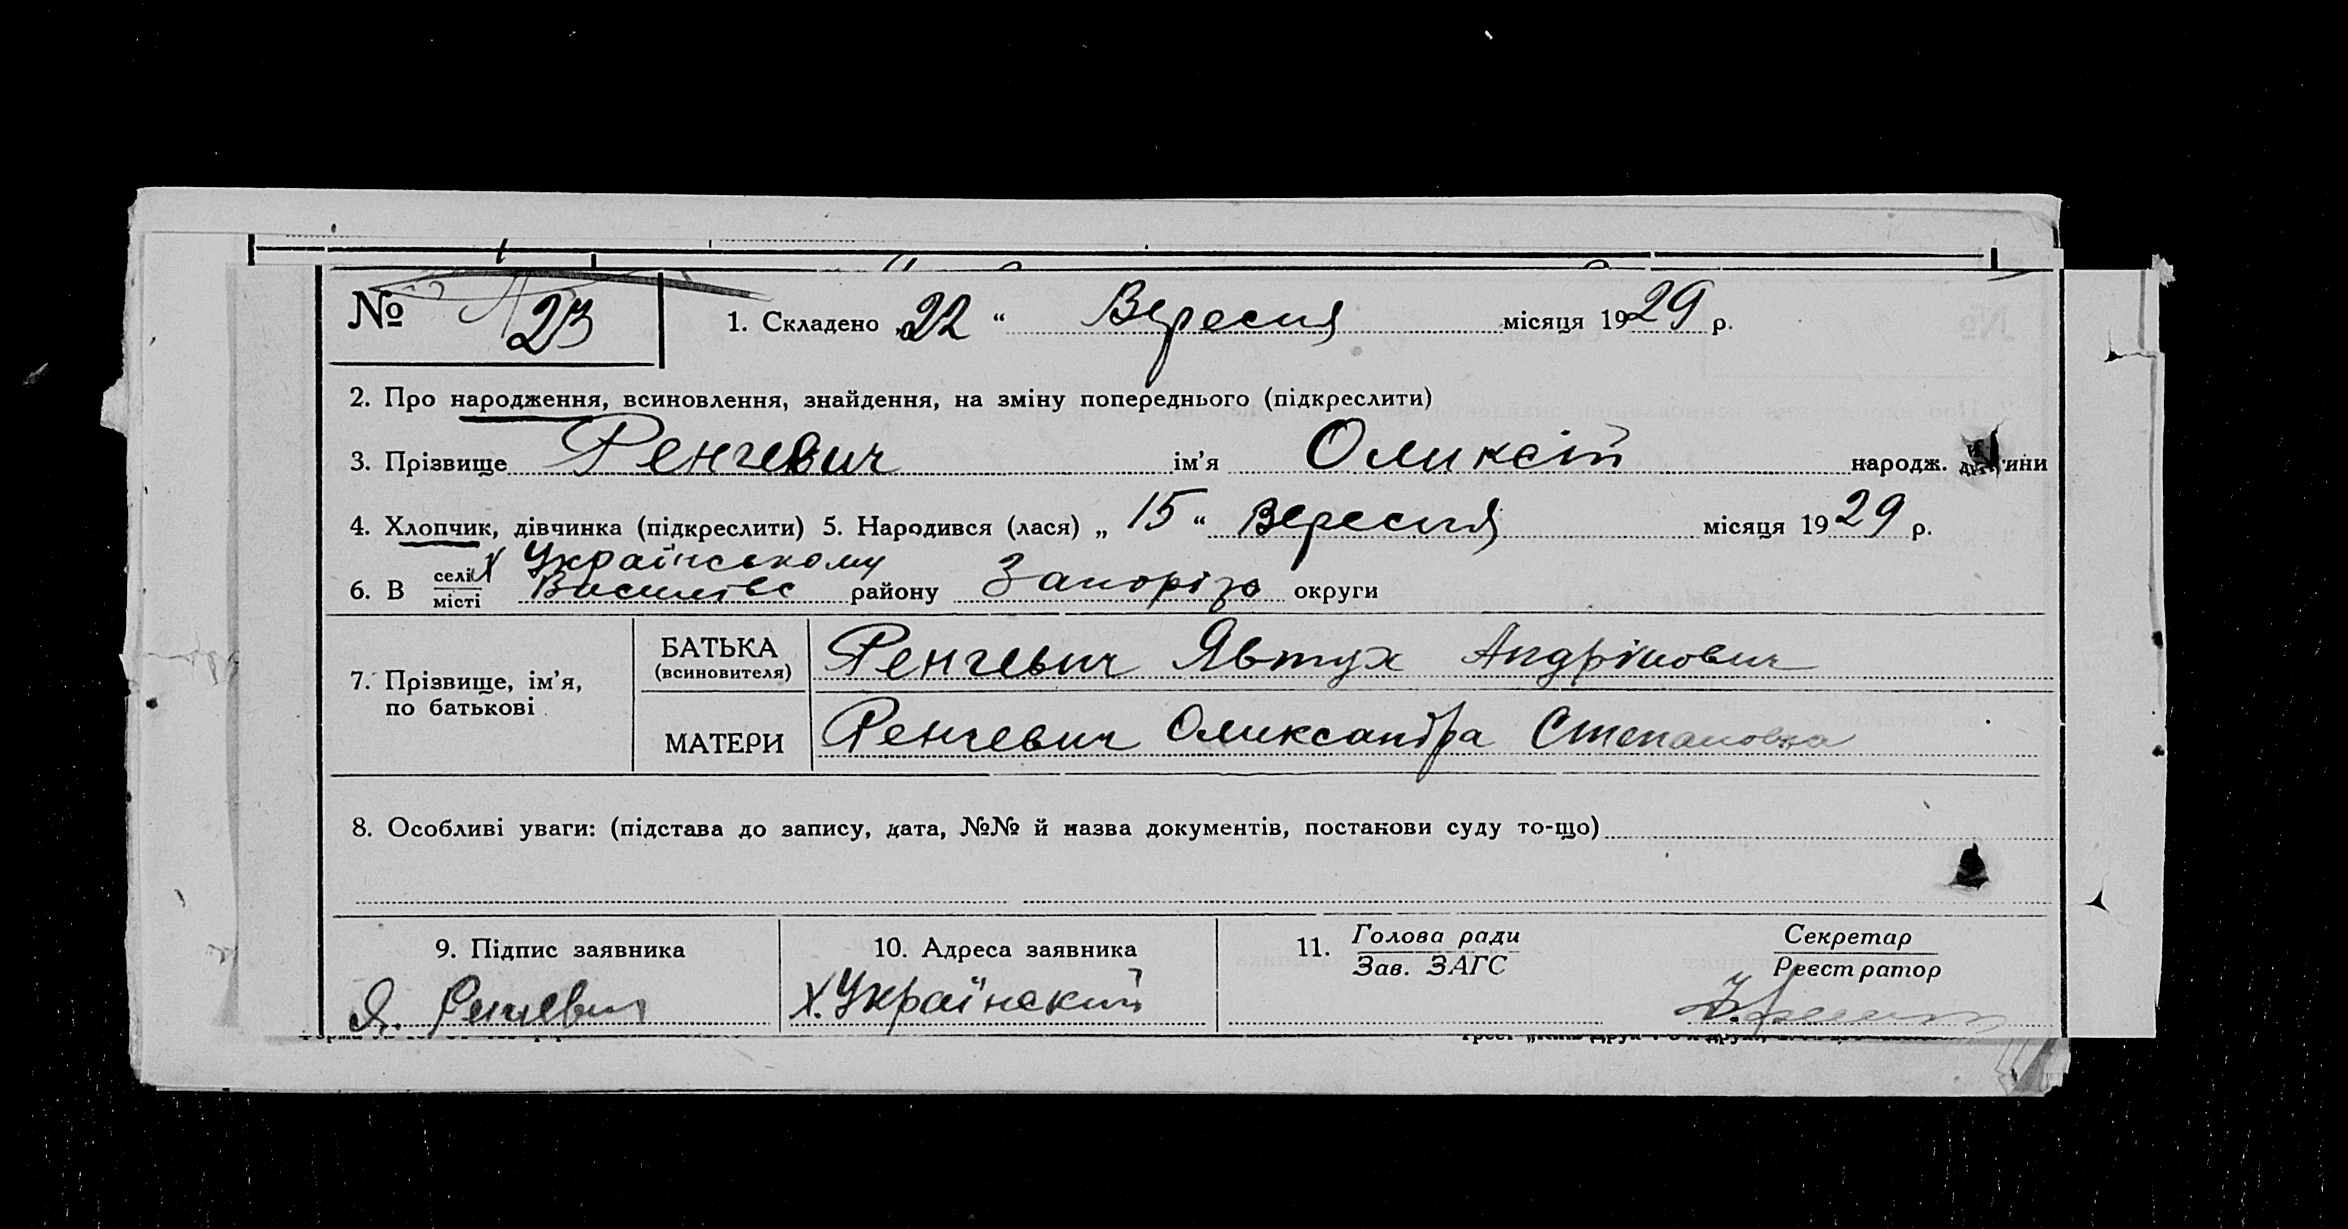 № 23
1. Складено „22“ Вересня місяця 1929 р.
2. Про народження, всиновлення, знайдення, на зміну попереднього (підкреслити)
3. Прізвище Ренгевич ім’я Оликсій народж. ини
4. Хлопчик, дівчинка (підкреслити) 5. Народився (лася) „15“ Вересня місяця 1929 р.
х Українському
6. В селі місті Василівс району Запорізь округи
7. Прізвище, ім’я, по батькові
БАТЬКА (всиновителя) Ренгевич Явтух Андріиович
МАТЕРИ Ренгевич Олександра Степановна
8. Особливі уваги: (підстава до запису, дата, №№ й назва документів, постанови суду то-що)
9. Підпис заявника
Я. Ренгевич
10. Адреса заявника
Х. Українский
11. Голова ради
Зав. ЗАГС
Секретар
Реєстратор